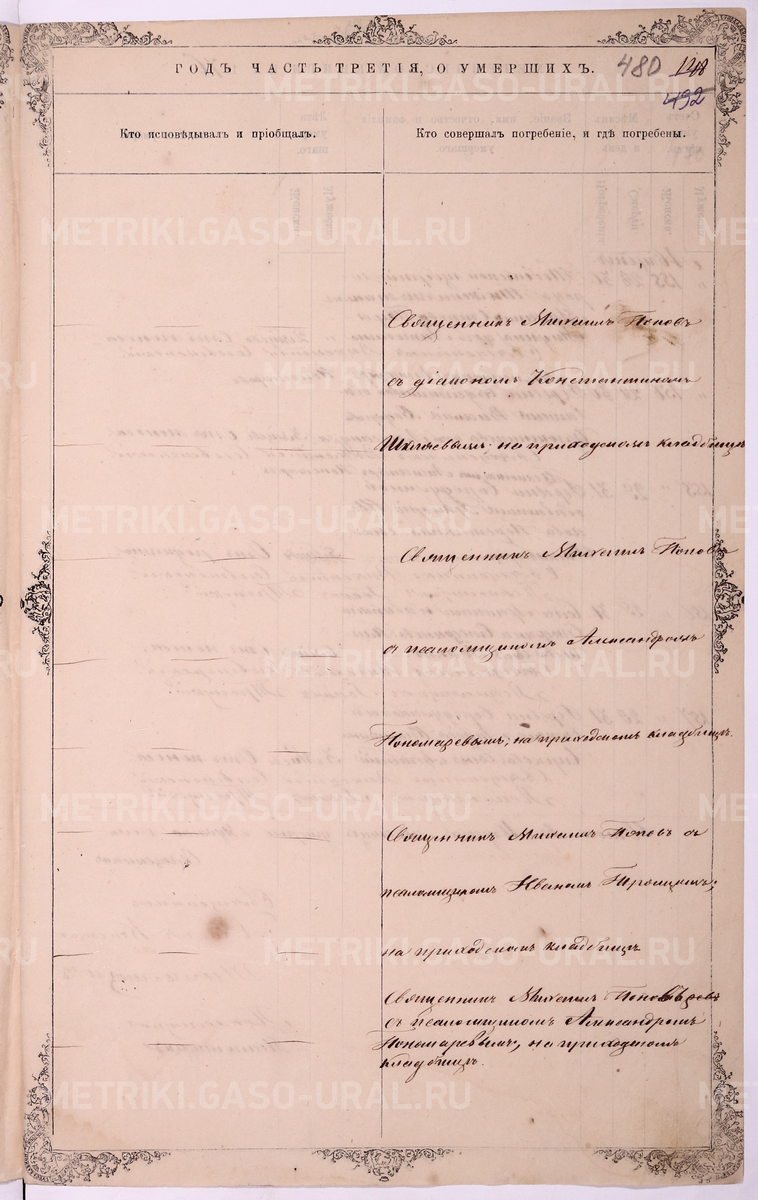 ГОДЪ ЧАСТЬ ТРЕТІЯ, О УМЕРШИХЪ.
480
492
Кто исповѣдывалъ и пріобщалъ.
Кто совершалъ погребеніе, и гдѣ погребены.
METRIKI.GASO-URAL.RU
Священникъ Михаилъ Поповъ
съ діакономъ Константиномъ
Шкляевымъ; на приходскомъ кладбищѣ
Священникъ Михаилъ Поповъ
съ псаломщикомъ Александромъ
Пономаревымъ; на приходскомъ кладбищѣ.
Священникъ Михаилъ Поповъ съ
псаломщикомъ Иваномъ Троицкимъ;
на приходскомъ кладбищѣ
Священникъ Михаилъ Поповъ
съ псаломщикомъ Александромъ
Пономаревымъ, на приходскомъ
кладбищѣ.